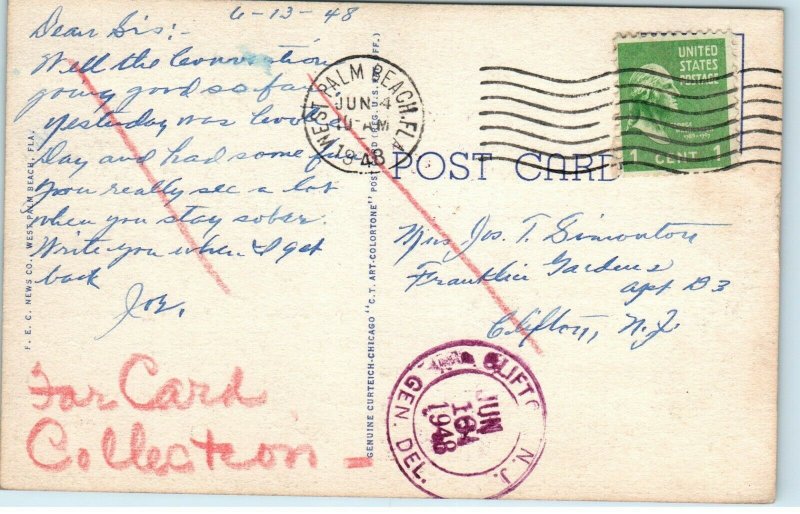 6-13-48
Dear Sis:-
Well the Convention
going good so far
yesterday was
Day and had some fun
You really see a lot
when you stay sober.
Write you when I get
back
Joe.
For Card
Collection -
F. E. C. NEWS CO., WEST PALM BEACH, FLA.
GENUINE CURTEICH-CHICAGO "C.T. ART-COLORTONE" POST CARD (REG. U.S. PAT. OFF.)
WEST PALM BEACH, FLA.
JUN 4
10 AM
1948
UNITED
STATES
POSTAGE
1 CENT 1
POST CARD
Mrs Jos. T. Simonton
Franklin Gardens
apt D3
Clifton, N.J.
CLIFTON N.J.
JUN
1948
GEN. DEL.